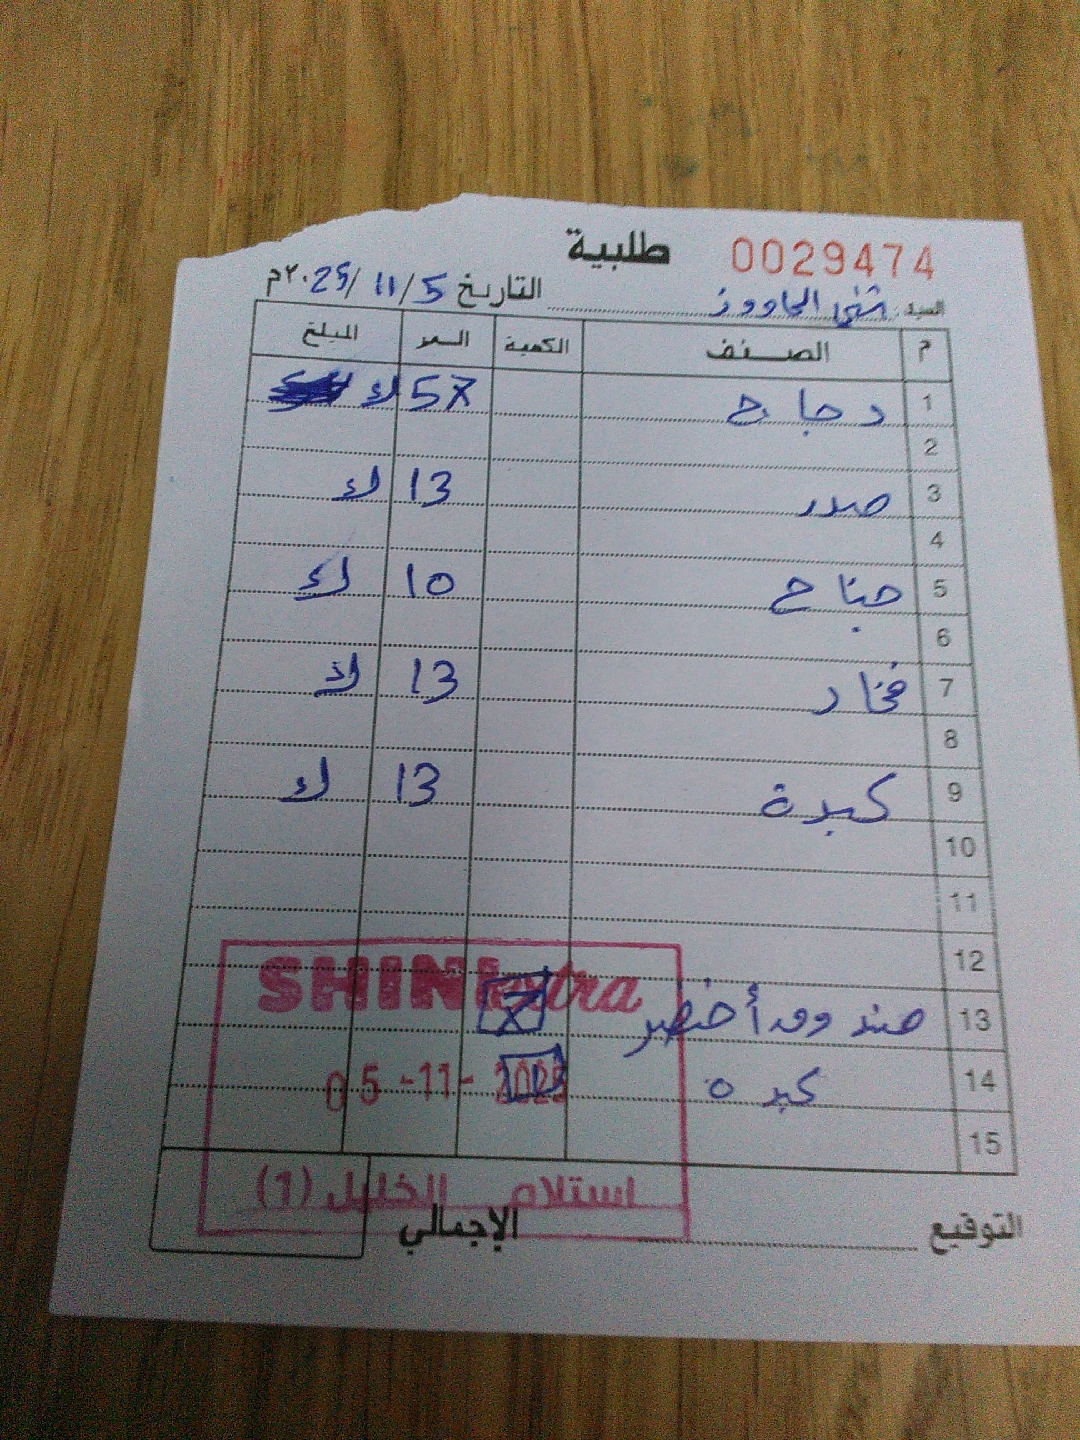 طلبية 0029474
السيد: شني الحاووز التاريخ 5/ 11 /2025م
م الصنف الكمية السعر المبلغ
1 دجاج 57 ك
2
3 صدر 13 ك
4
5 جناح 10 ك
6
7 فخاد 13 ك
8
9 كبدة 13 ك
10
11
12
SHINI extra
13 صندوق أخضر 7
14 كبده 1
05 -11- 2025
15
استلام الخليل (1)
التوقيع الإجمالي